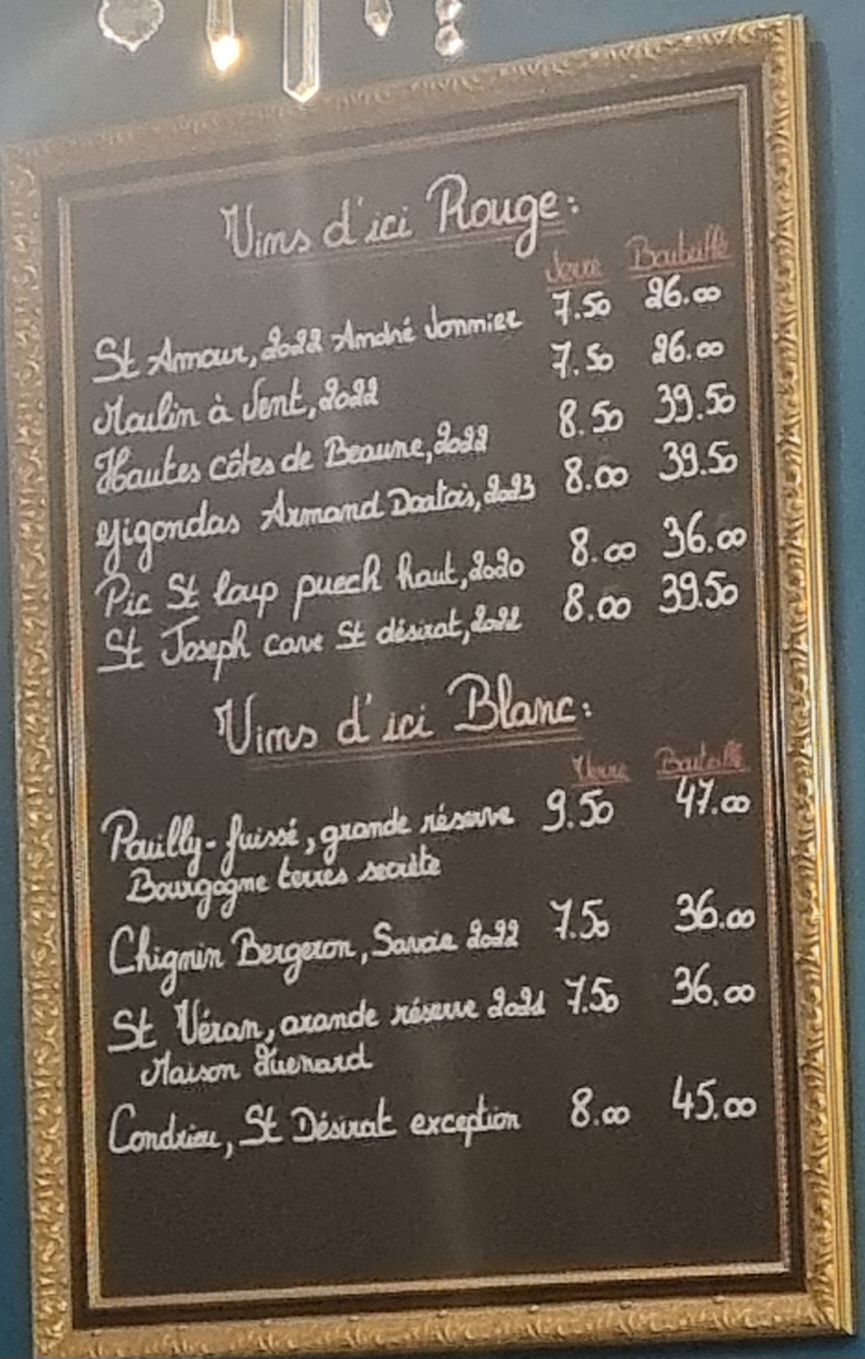 Vins d'ici Rouge:
Verre Bouteille
St Amour, 2022 André Vonnier 7.50 26.00
Moulin à Vent, 2022 7.50 26.00
Hautes côtes de Beaune, 2022 8.50 39.50
Gigondas Armand Dartois, 2023 8.00 39.50
Pic St loup puech haut, 2020 8.00 36.00
St Joseph cave St désirat, 2022 8.00 39.50
Vins d'ici Blanc:
Verre Bouteille
Pouilly-fuissé, grande réserve 9.50 47.00
Bourgogne terres secrète
Chignin Bergeron, Savoie 2022 7.50 36.00
St Véran, grande réserve 2021 7.50 36.00
Maison Quenard
Condrieu, St Désirat exception 8.00 45.00